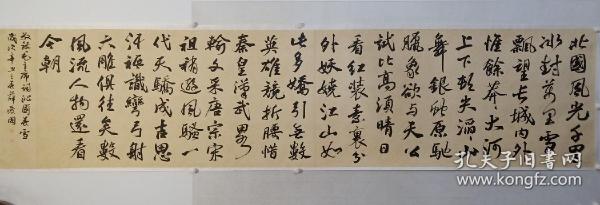 北國風光千里
冰封萬里雪
飄望長城內外
惟餘莽大河
上下頓失滔
舞銀蛇原馳
臘象欲與天公
試比高須晴日
看紅裝素裹分
外妖嬈江山如
此多嬌引無數
英雄競折腰惜
秦皇漢武略
輸文采唐宗宋
祖稍遜風騷一
代天驕成吉思
汗祇識彎弓射
大雕俱往矣數
風流人物還看
今朝
敬錄毛主席詞沁園春雪
歲次辛丑之春
孔夫子旧书网
www.kongfz.com